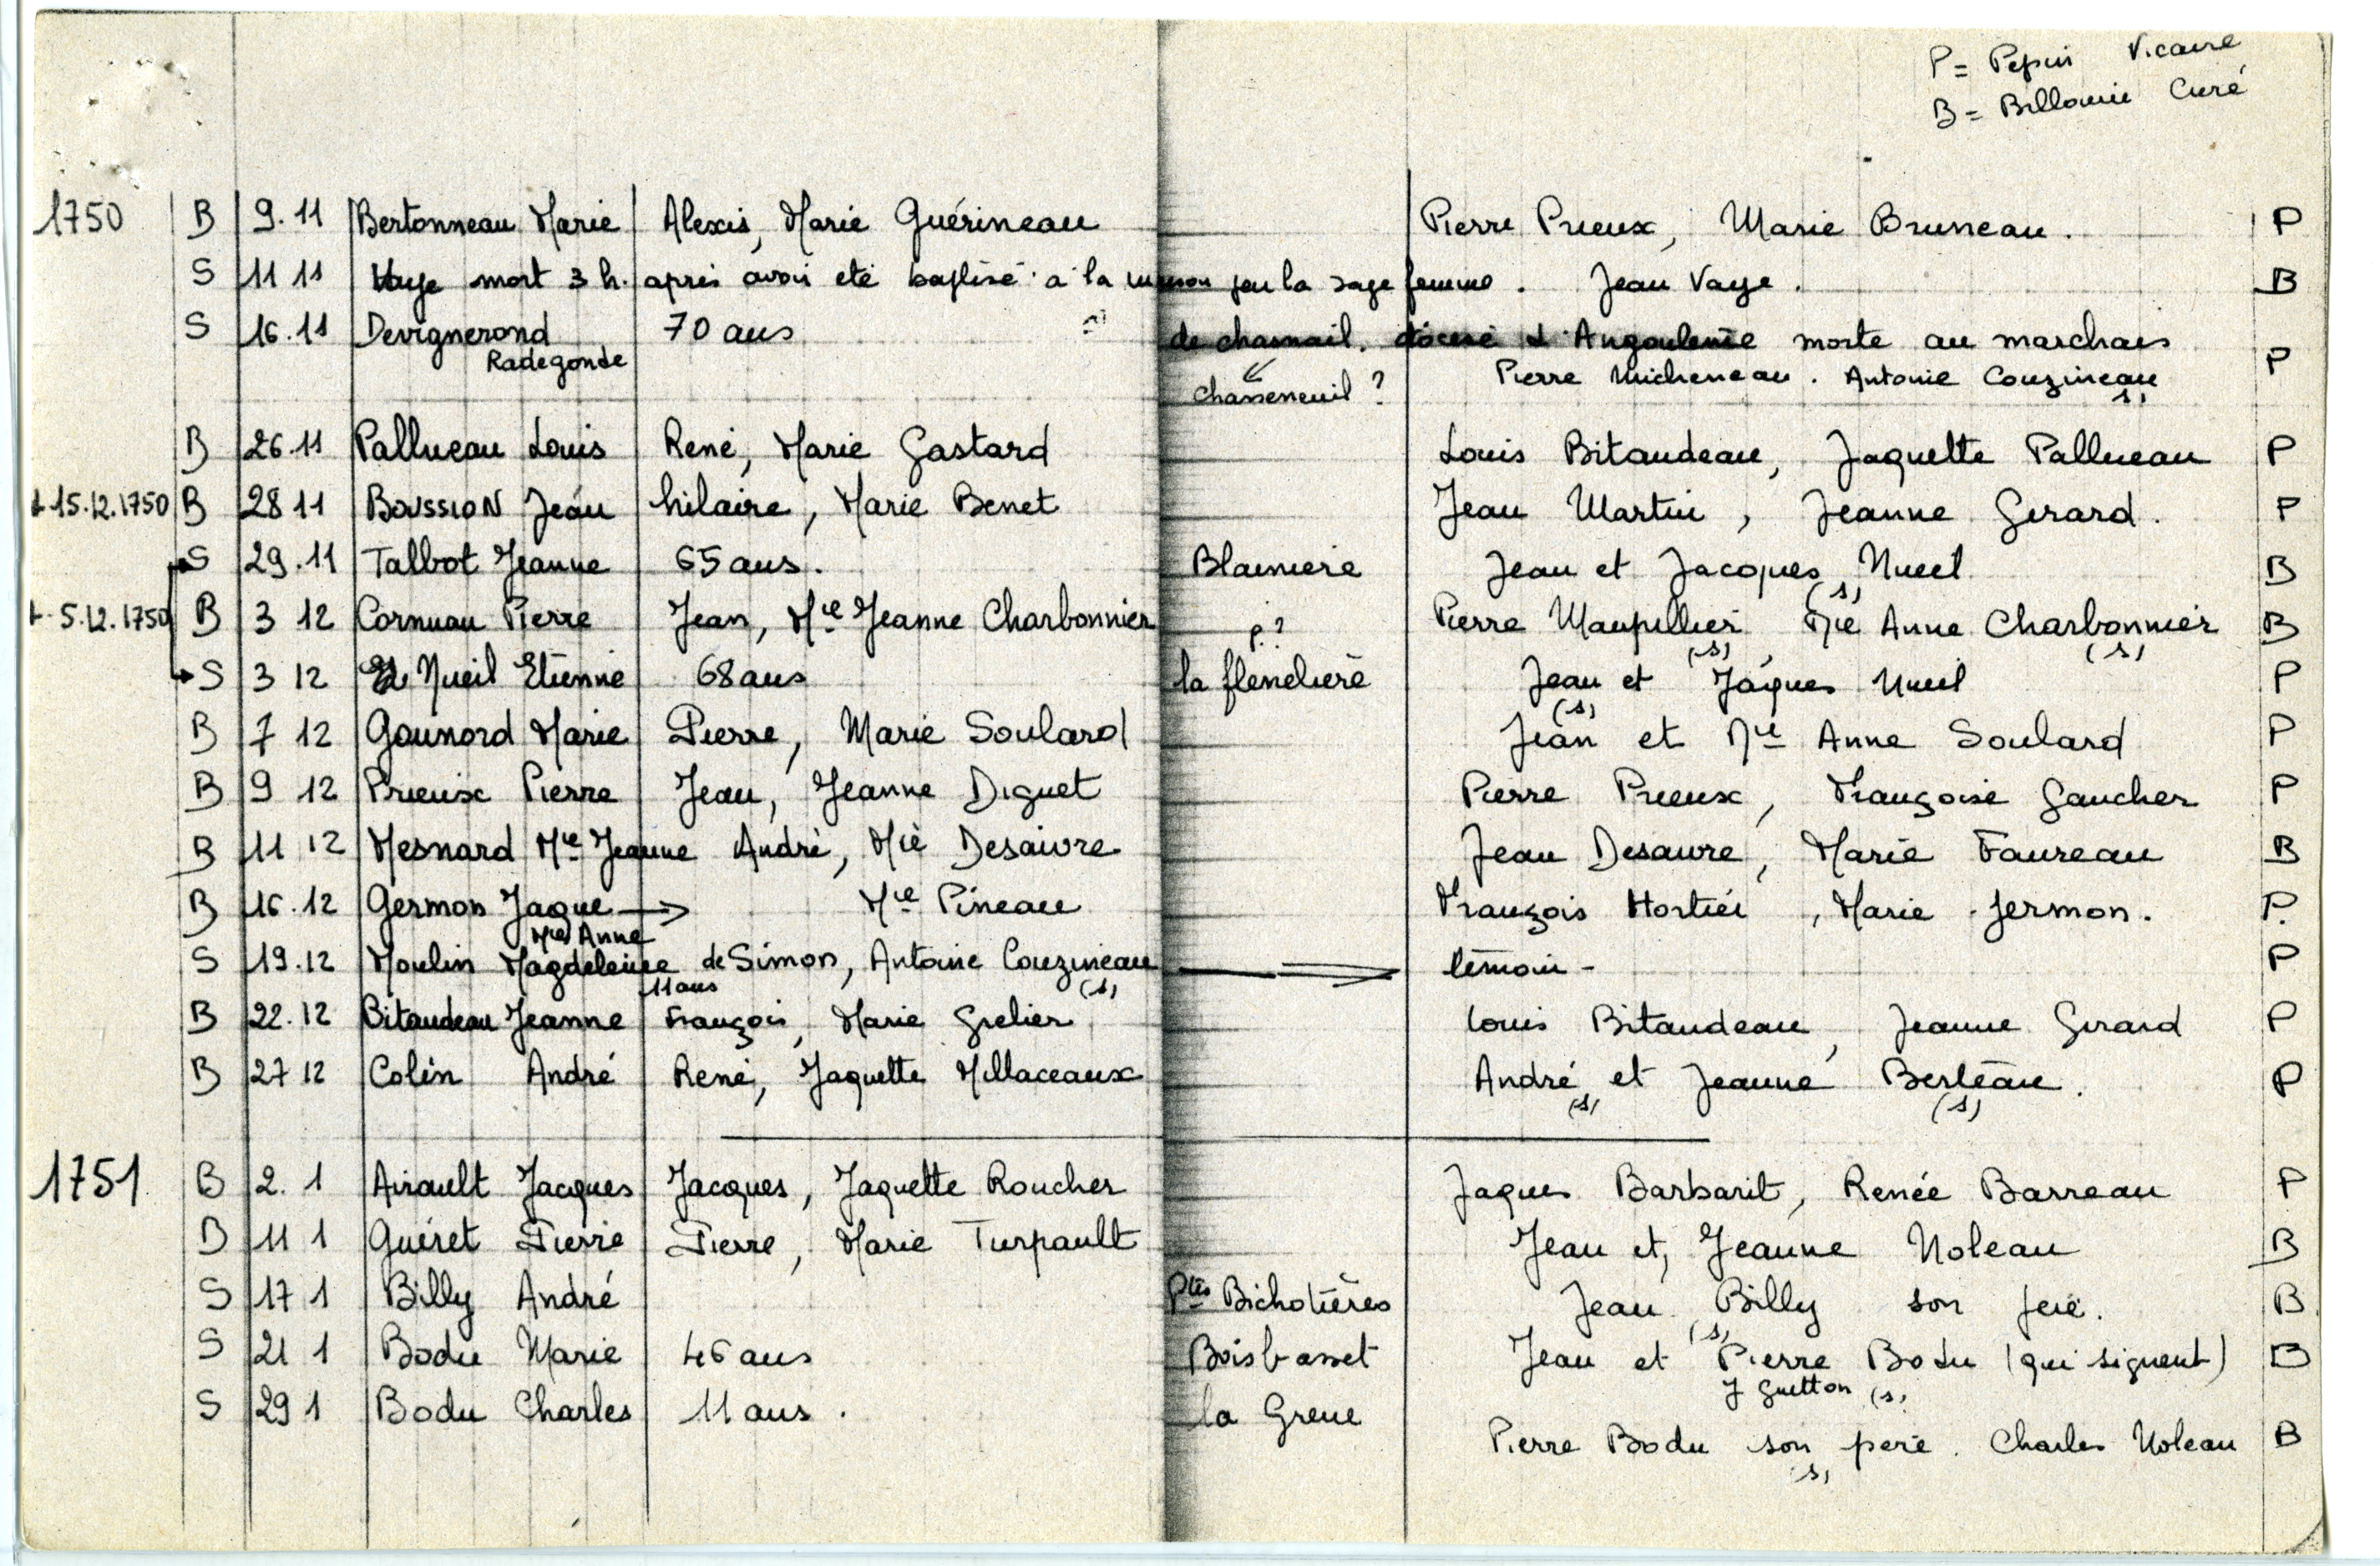 P = Pepin Vicaire
B = Billouin Curé
1750 B 9.11 Bertonneau Marie Alexis, Marie Guérineau Pierre Prieux, Marie Bruneau. P
S 11 11 Vaye mort 3 h. après avoir eté baptisé à la maison par la sage femme. Jean Vaye. B
S 16.11 Devignerond 70 ans de chasnail. diocese d'Angouleme morte au marchais
Radegonde chasseneuil ? Pierre Micheneau. Antoine Couzineau P
(s)
B 26.11 Pallueau Louis René, Marie Gastard Louis Bitaudeau, Jaquette Pallueau P
+ 15.12.1750 B 28 11 BOUSSION Jean hilaire, Marie Benet Jean Martin, Jeanne Gerard. P
S 29.11 Talbot Jeanne 65 ans. Blainiere Jean et Jacques Nueil B
(s)
+ 5.12.1750 B 3 12 Cornuau Pierre Jean, Mie Jeanne Charbonnier p? Pierre Maupillier, Mie Anne Charbonnier B
(s) (s)
S 3 12 Nueil Etienne 68 ans la flenelière Jean et Jaques Nueil P
(s)
B 7 12 Gounord Marie Pierre, Marie Soulard Jean et Mie Anne Soulard P
B 9 12 Prieux Pierre Jean, Jeanne Diguet Pierre Prieux, Françoise Gaucher P
B 11 12 Mesnard Mie Jeanne André, Mie Desaivre Jean Desaivre, Marie Faureau B
B 16.12 Germon Jaque → Mie Pineau François Hortier, Marie Jermon. P.
Mie Anne
S 19.12 Moulin Magdeleine de Simon, Antoine Couzineau témoin - P
11 ans (s)
B 22.12 Bitaudeau Jeanne François, Marie Grelier Louis Bitaudeau, Jeanne Girard P
B 27 12 Colin André René, Jaquette Millaceaux André et Jeanne Berteau. P
(s) (s)
1751 B 2.1 Airault Jacques Jacques, Jaquette Roucher Jaques Barbarit, Renée Barreau P
B 11 1 Guéret Pierre Pierre, Marie Turpault Jean et, Jeanne Noleau B
S 17 1 Billy André Ptes Bichotières Jean Billy son père. B
(s)
S 21 1 Bodu Marie 46 ans Boisbasset Jean et Pierre Bodu (qui signent) B
J Guetton (s)
S 29 1 Bodu Charles 11 ans. la Greue
Pierre Bodu son père. Charles Noleau B
(s)